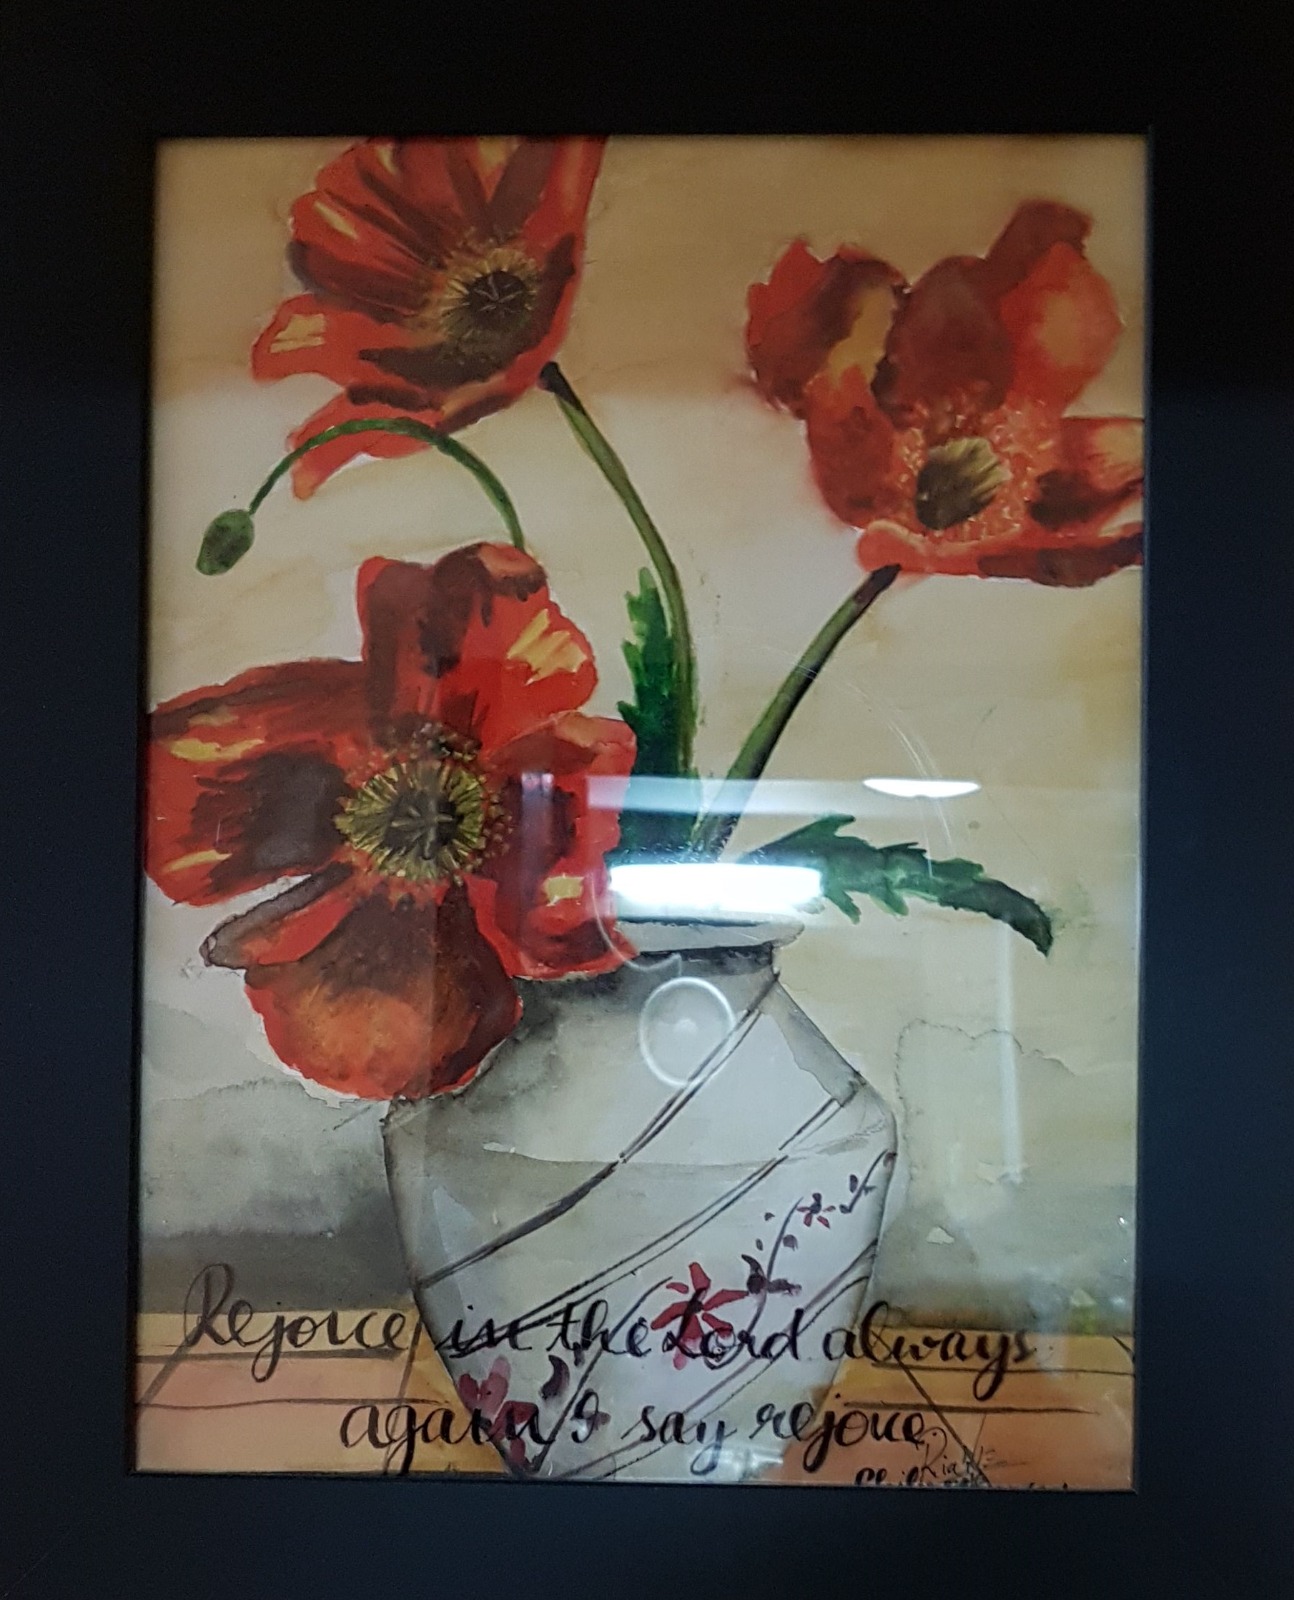 Rejoice in the Lord always
again I say rejoice.
Ria